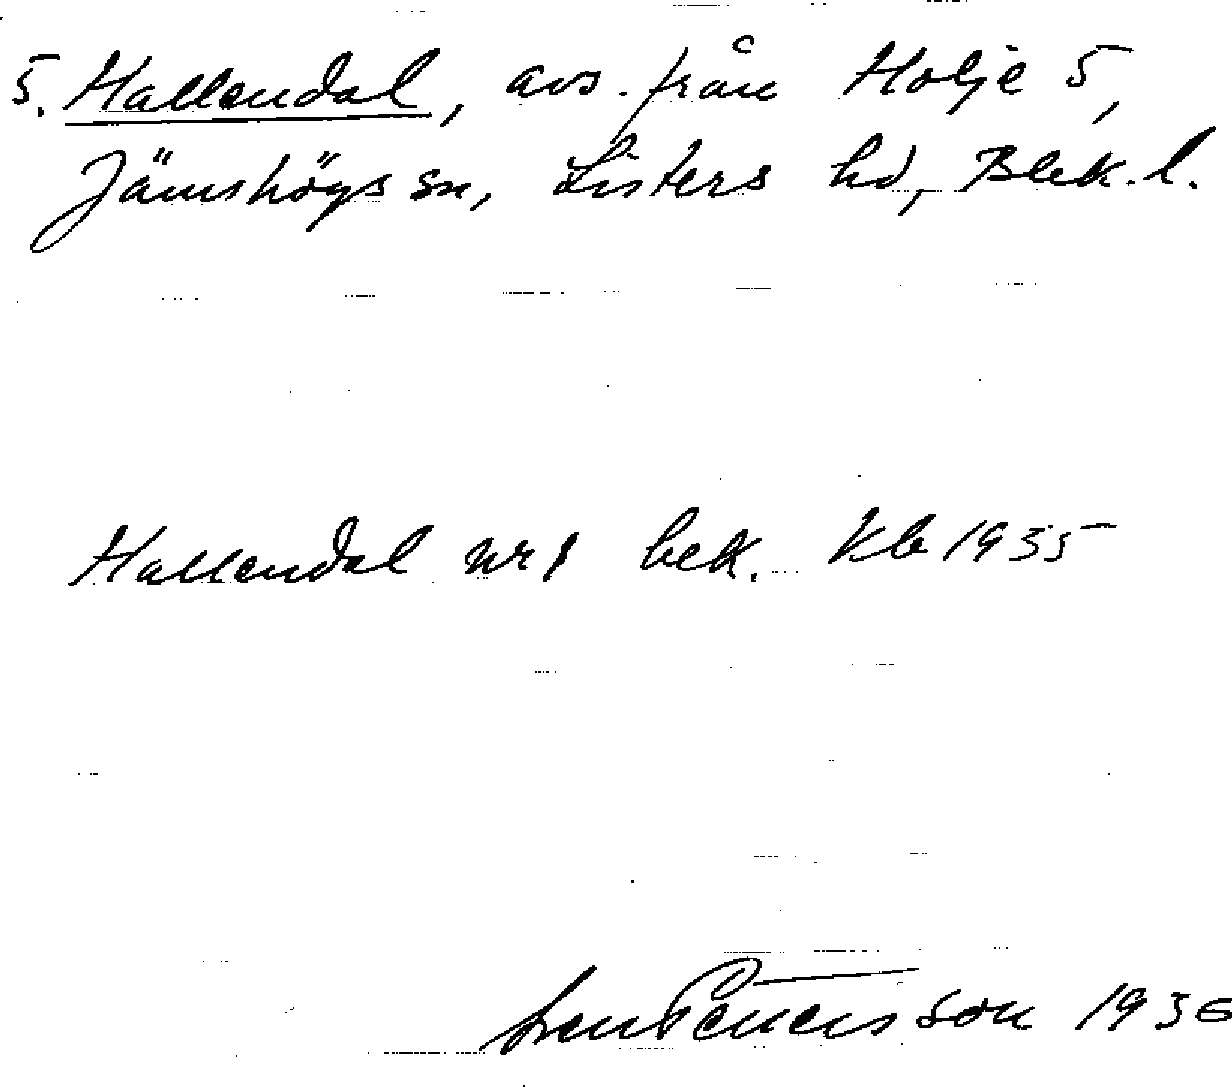 5. Hallendal, avs. från Holje 5,
Jämshögs sn, Listers hd, Blek. l.
Hallendal nr 1 bek. Kb 1935
Sven Pettersson 1936